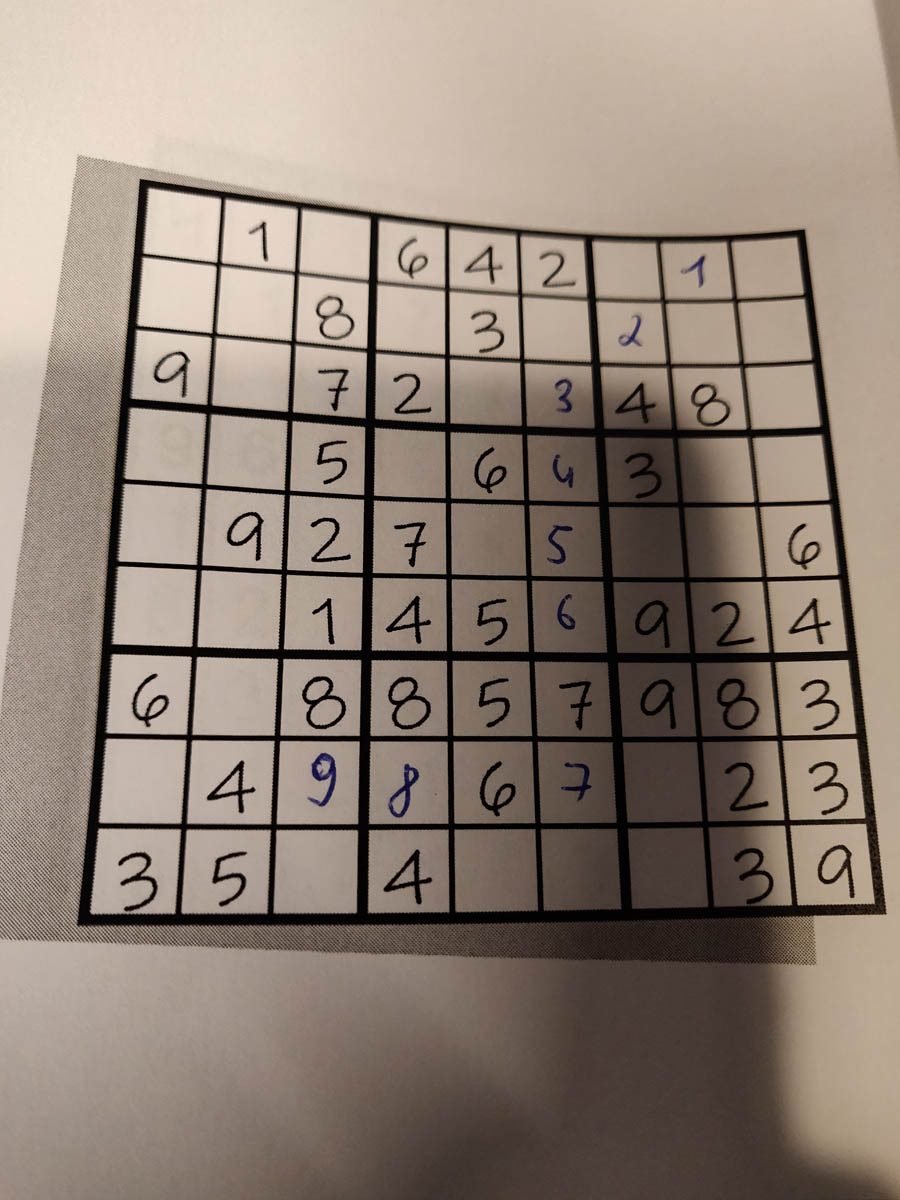 1 6 4 2 1
8 3 2
9 7 2 3 4 8
5 6 4 3
9 2 7 5 6
1 4 5 6 9 2 4
6 8 8 5 7 9 8 3
4 9 8 6 7 2 3
3 5 4 3 9